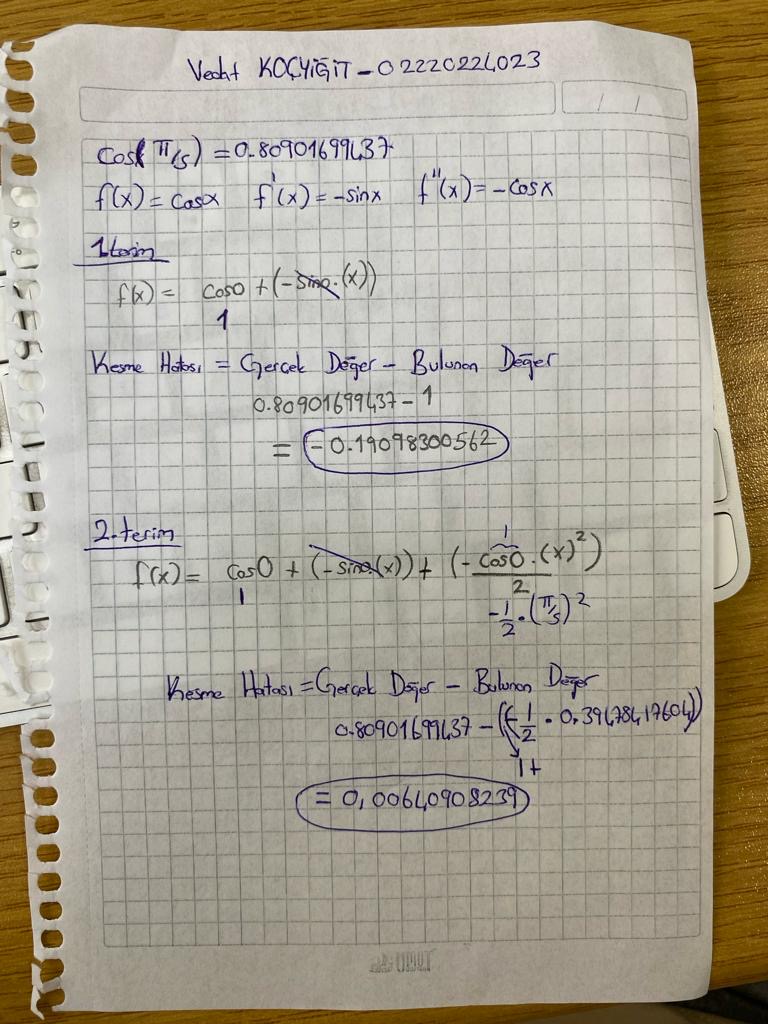 Vecht KOÇYİĞİT - 02220224023
/ /
Cos(π/5) = 0.80901699437
f(x) = Cosx f'(x) = -sinx f''(x) = -Cosx
1.terim
f(x) = Cos0 + (-sin0.(x))
1
Kesme Hatası = Gerçek Değer - Bulunan Değer
0.80901699437 - 1
= -0.19098300562
2.terim
f(x) = Cos0 + (-sin0.(x)) + (-Cos0.(x)²)
1 1 2
-1/2 . (π/5)²
Kesme Hatası = Gerçek Değer - Bulunan Değer
0.80901699437 - (-1/2 . 0.39478417604))
1+
= 0,00640908239